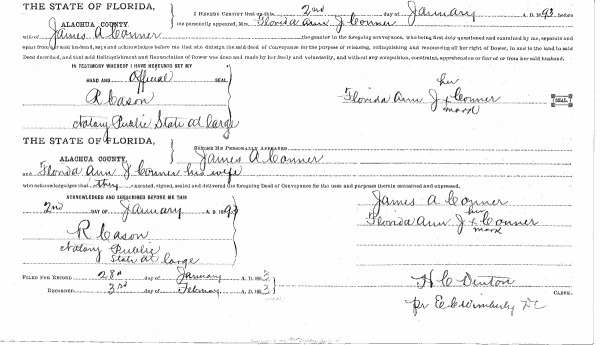 THE STATE OF FLORIDA,
ALACHUA COUNTY.
I HEREBY CERTIFY that on this 2nd day of January A. D. 1893 before
me personally appeared, Mrs. Florida Ann J Conner
wife of James A Conner the grantor in foregoing conveyance, who being first duly questioned and examined by me, separate and
apart from her said husband, says and acknowledges before me that she did sign the said deed of Conveyance for the purpose of releasing, relinquishing and renouncing all her right of Dower, in and to the land in said
Deed described, and that said Relinquishment and Renunciation of Dower was done and made by her freely and voluntarily, and without any compulsion, constraint, apprehension or fear of or from her said husband.
IN TESTIMONY WHEREOF I HAVE HEREUNTO SET MY
HAND AND Official SEAL.
R Cason
Notary Public State at large
her
Florida Ann J x Conner
mark
SEAL.
THE STATE OF FLORIDA,
ALACHUA COUNTY.
BEFORE ME PERSONALLY APPEARED
James A Conner
and Florida Ann J Conner his wife
who acknowledges that they executed, signed, sealed and delivered the foregoing Deed of Conveyance for the uses and purposes therein contained and expressed.
ACKNOWLEDGED AND SUBSCRIBED BEFORE ME THIS
2nd DAY OF January A. D. 1893
R Cason
Notary Public
State at large
James A Conner
her
Florida Ann J x Conner
mark
FILED FOR RECORD 28th day of January A. D. 1893
RECORDED 3rd day of February A. D. 1893
H C Denton
CLERK.
pr E C Wimberly D C